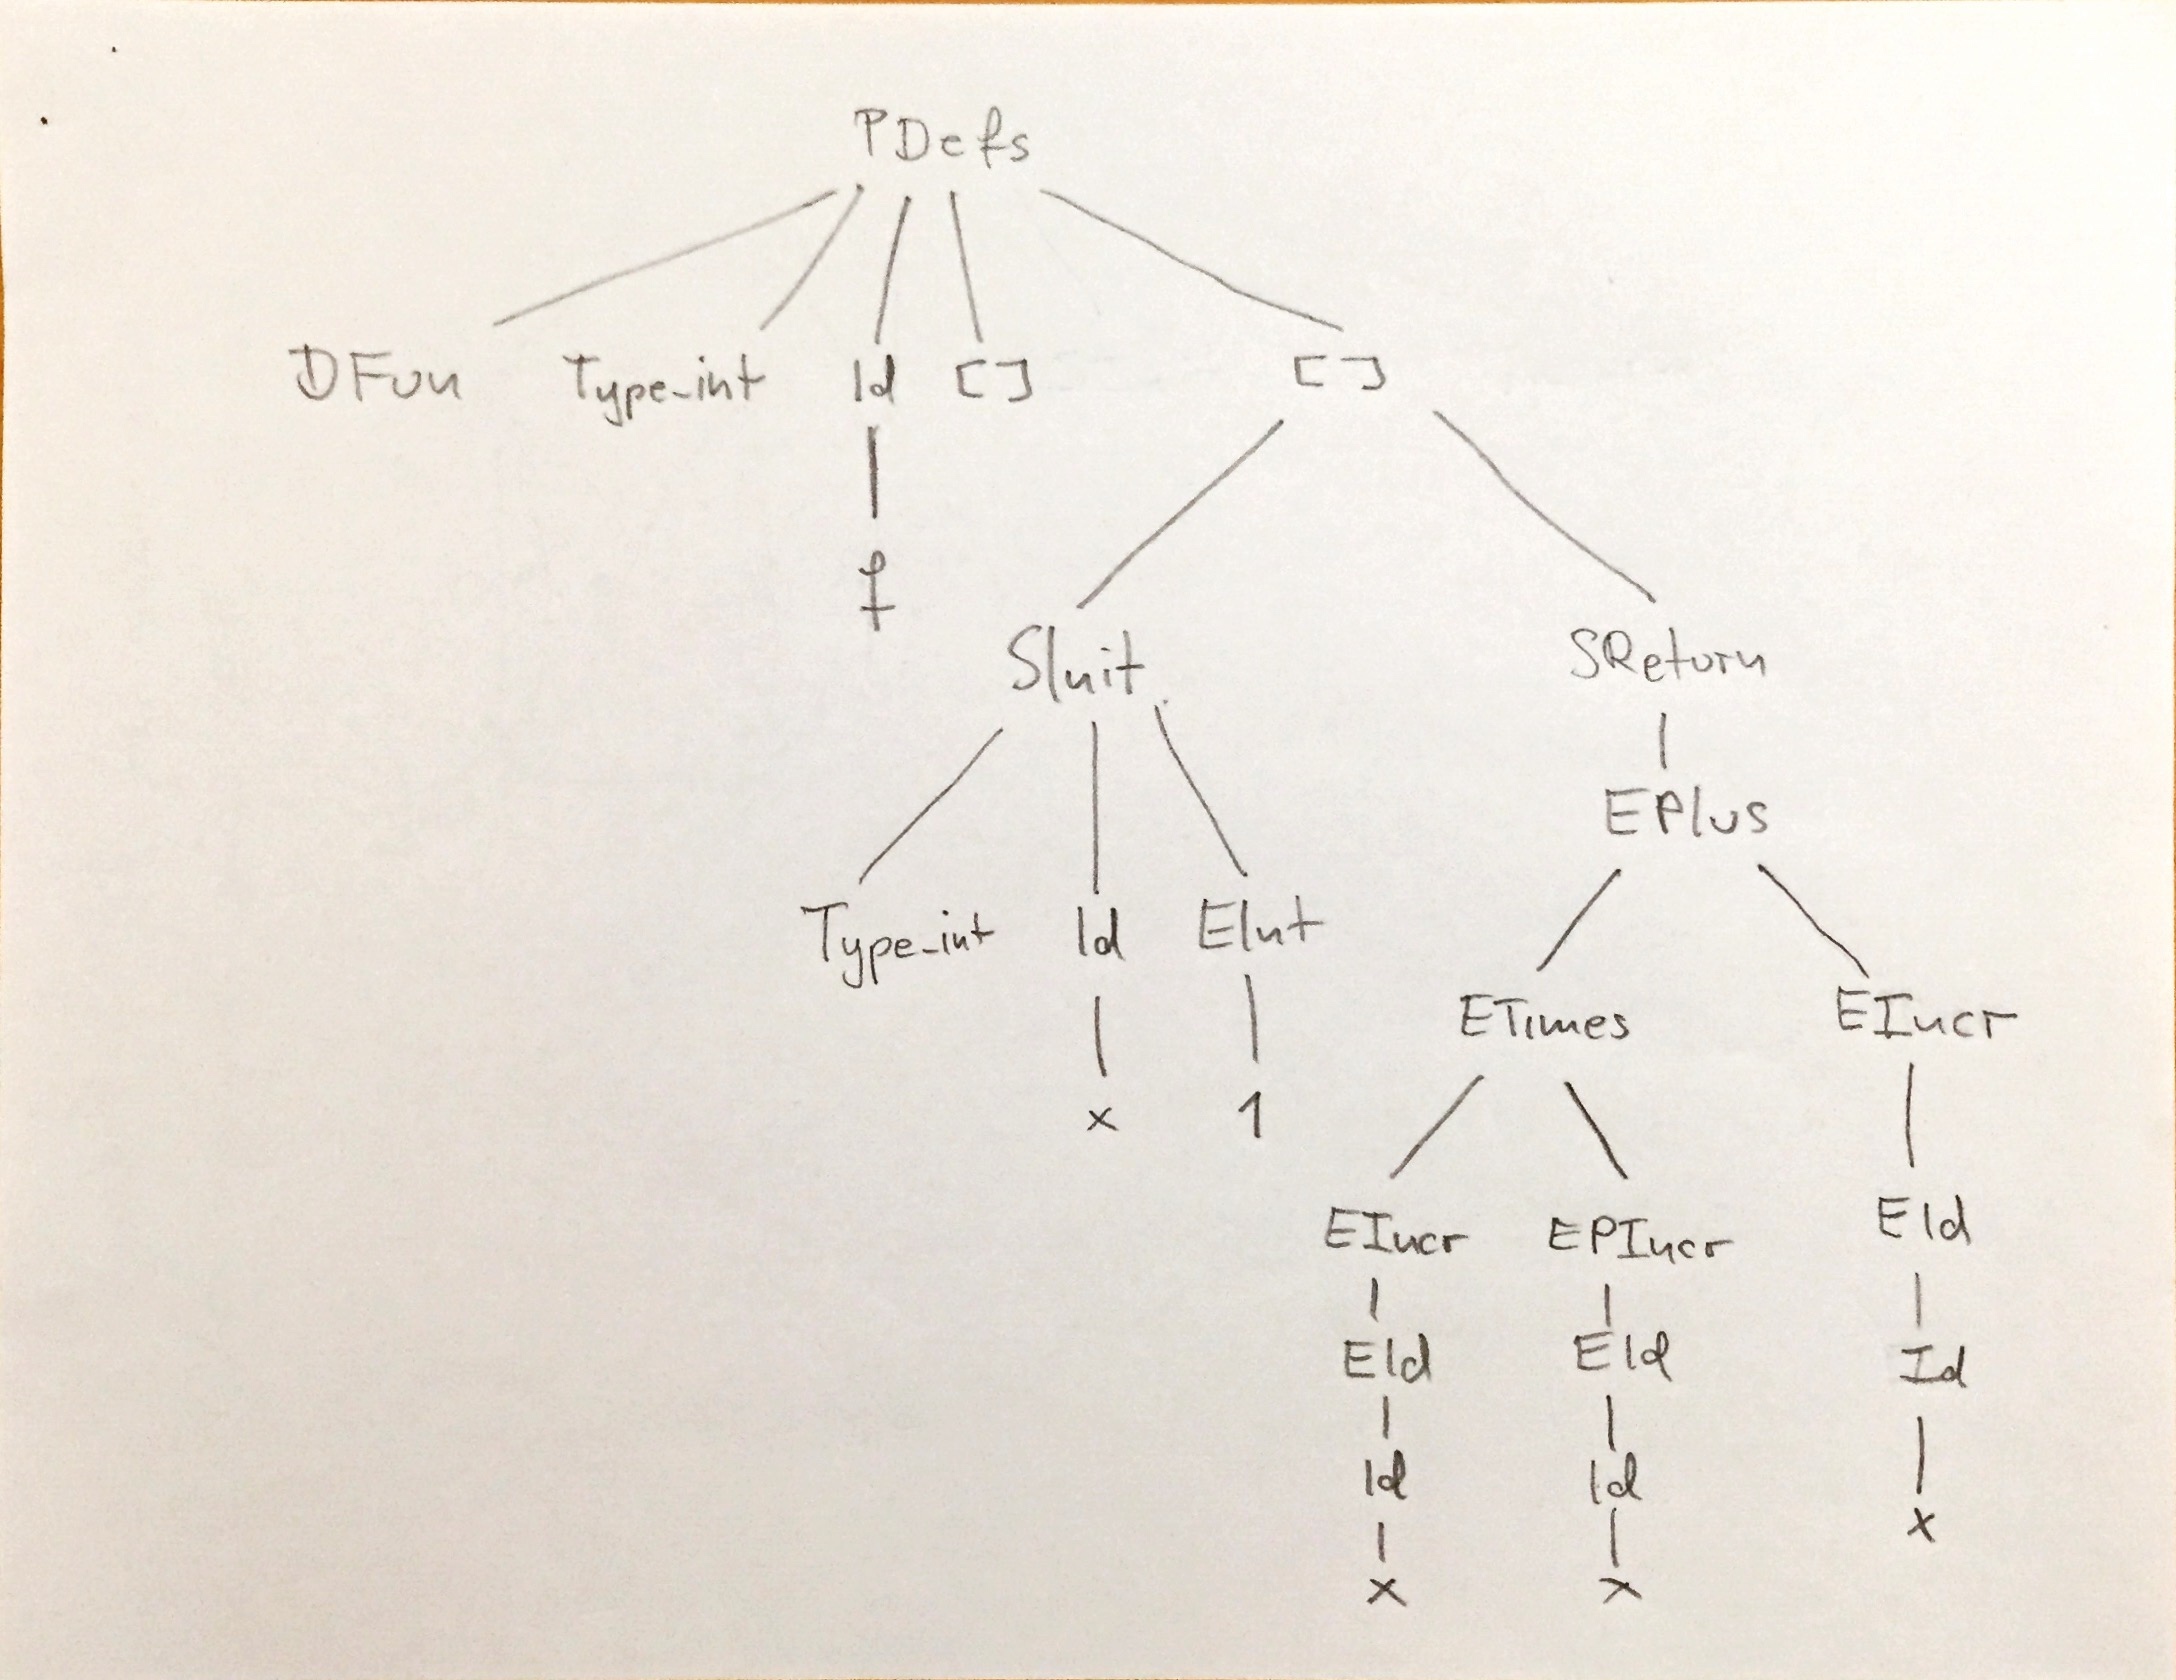 PDefs
DFun Type_int Id [] []
f
SInit SReturn
EPlus
Type_int Id EInt
ETimes EIncr
x 1
EIncr EPIncr EId
EId EId Id
Id Id x
x x